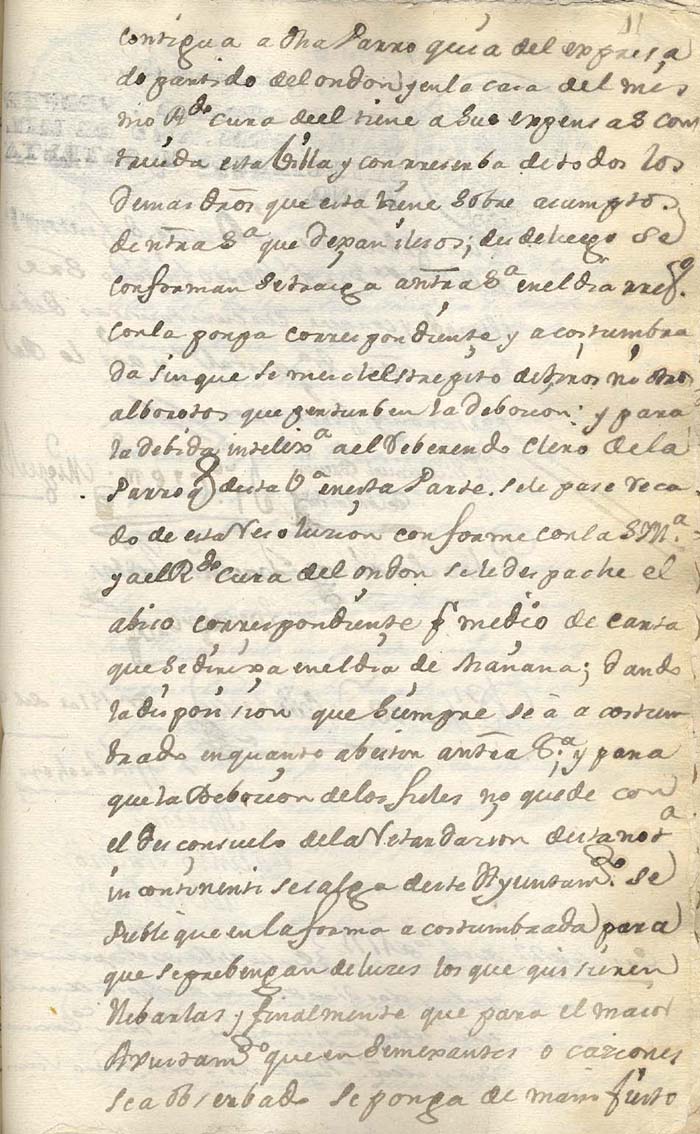 11
contigua a dha Parroquia del expresa
do partido del ondon y en la casa del mis
mo Rdo cura de el tiene a sus expensas cons
truida esta Villa y con rreserba de todos los
demas dros que esta tiene sobre acumptos
de ntra Sa que dexan ilesos; desde luego se
conforman se traiga a ntra Sa en el dia
con la ponpa correspondiente y acostumbra
da sin que se mescle el strepito de tiros ni otros
alborotos que perturben la deboción; y para
la debida intelixa a el Reberendo Clero de la
Parroq de esta Va en esta Parte. se le pase reca
do de esta Resoluzion conforme con la SMa
y a el Rdo cura del ondon se le despache el
abiso correspondiente p medio de carta
que se dirixa en el dia de Mañana; dando
la disposision que siempre se a acostum
brado en quanto a ntra Sa y para
que la Debocion de los fieles no quede con
el desconsuelo de la Retardazion de esta nota
in continenti se salga de este Ayuntamto se
Publique en la forma acostumbrada para
que se prebengan de luzes los que quisieren
llebarlas y finalmente que para el maior
que en semexantes ocaziones
se a obserbado se ponga de manifiesto